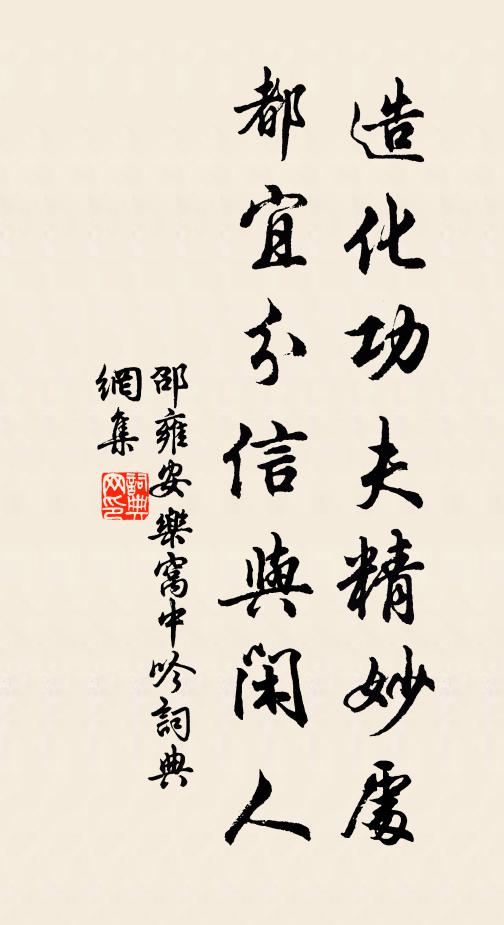 造化功夫精妙處
都宜分信與閑人
邵雍安樂窩中吟詞典
網集
詞典
网印